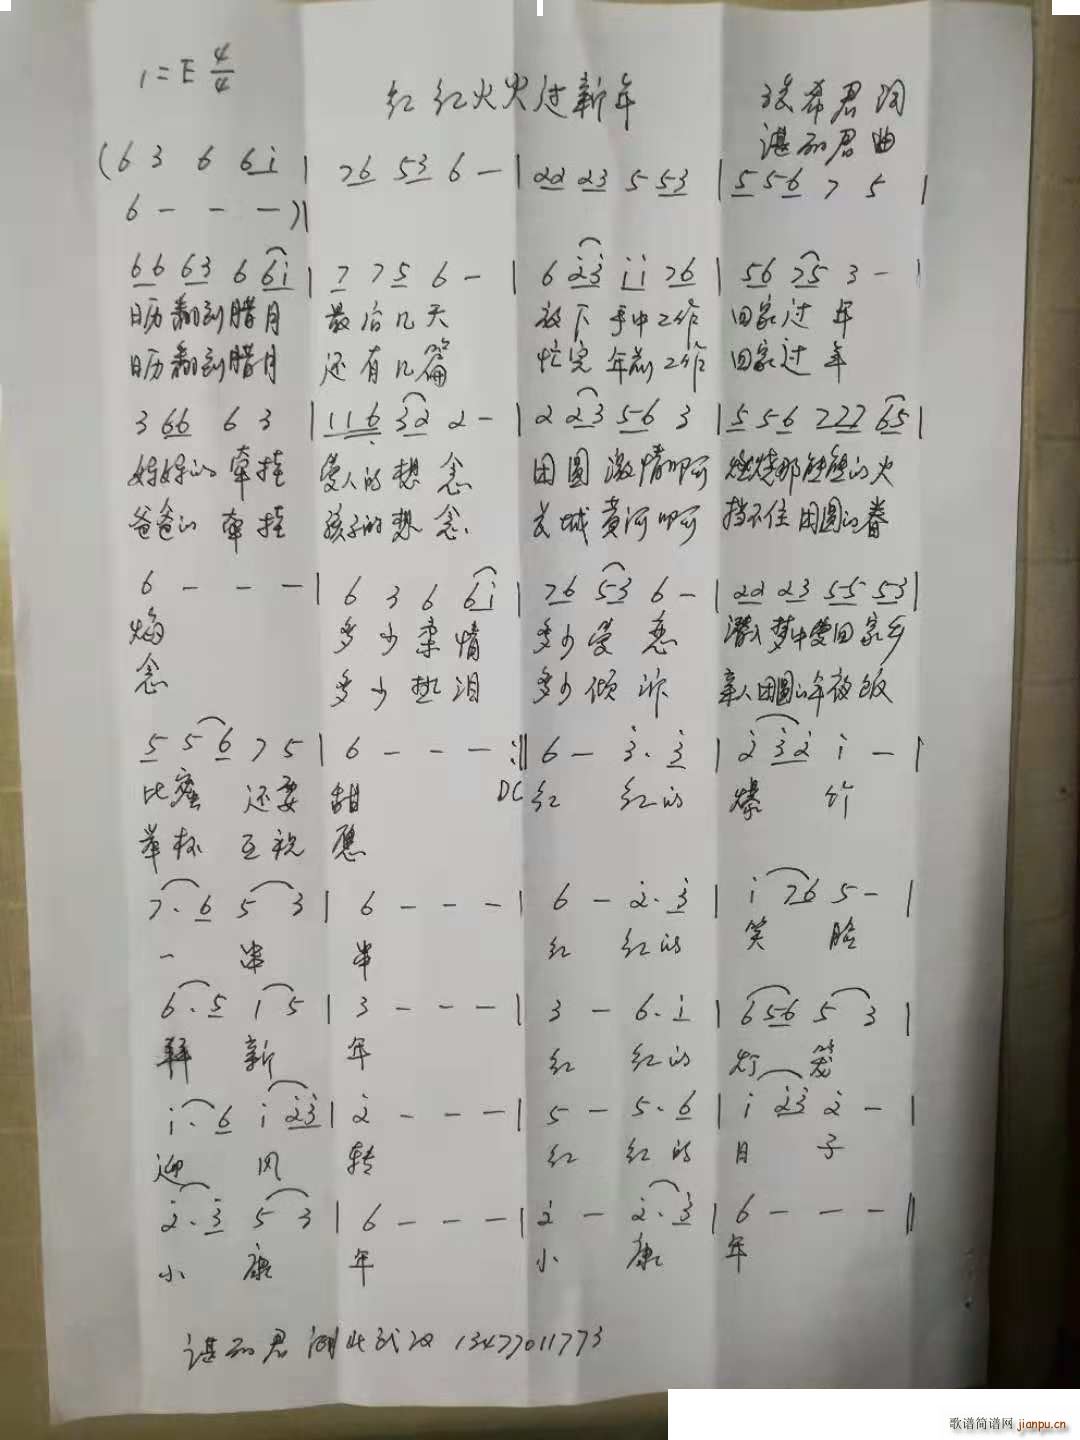 1=E 4/4
红红火火过新年
张希君 词
谌丽君 曲
(6 3 6 6i | 76 53 6 - | 22 23 5 53 | 5 56 7 5 |
6 - - - )||
66 63 6 6i | 7 75 6 - | 6 23 ii 76 | 56 75 3 - |
日历翻到腊月 最后几天 放下手中工作 回家过年
日历翻到腊月 还有几篇 忙完年前工作 回家过年
3 66 6 3 | 116 32 2 - | 2 23 56 3 | 5 56 777 65 |
妈妈的牵挂 爱人的想念 团圆激情啊 燃烧那熊熊的火
爸爸的牵挂 孩子的想念 长城黄河啊 挡不住团圆的眷
6 - - - | 6 3 6 6i | 76 53 6 - | 22 23 55 53 |
焰 多少柔情 多少爱恋 潜入梦中爱回家乡
念 多少热泪 多少倾诉 亲人团圆的年夜饭
5 56 75 | 6 - - - :|| 6 - 3. 3 | 2 32 i - |
比蜜还要甜 DC 红 红的 爆竹
举杯互祝愿
7. 6 5 3 | 6 - - - | 6 - 2. 3 | i 76 5 - |
一串串 红 红的 笑脸
6. 5 1 5 | 3 - - - | 3 - 6. i | 656 5 3 |
拜新年 红 红的 灯笼
i. 6 i 23 | 2 - - - | 5 - 5. 6 | i 23 2 - |
迎风转 红 红的 日子
2. 3 5 3 | 6 - - - | 2 - 2. 3 | 6 - - - ||
小康年 小康年
谌丽君 湖北武汉 13477011773
歌谱简谱网 jianpu.cn